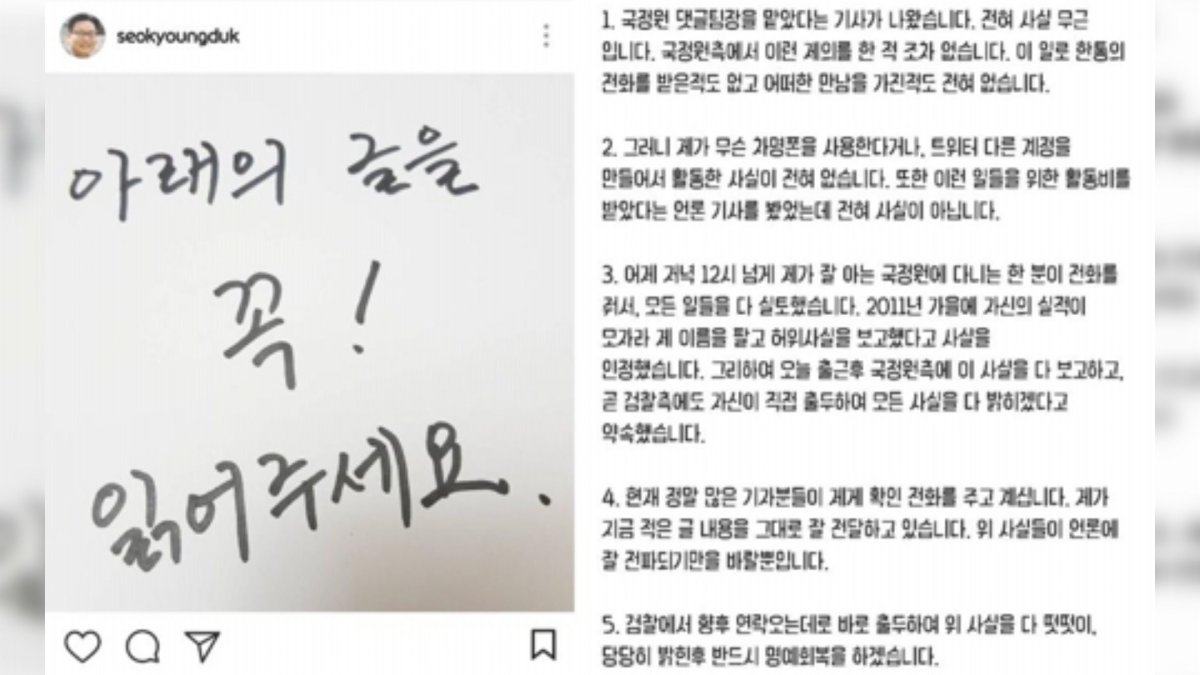 seokyoungduk
아래의 글을
꼭!
읽어주세요..
1. 국정원 댓글팀장을 맡았다는 기사가 나왔습니다. 전혀 사실 무근
입니다. 국정원측에서 이런 제의를 한 적 조차 없습니다. 이 일로 한통의
전화를 받은적도 없고 어떠한 만남을 가진적도 전혀 없습니다.
2. 그러니 제가 무슨 차명폰을 사용한다거나, 트위터 다른 계정을
만들어서 활동한 사실이 전혀 없습니다. 또한 이런 일들을 위한 활동비를
받았다는 언론 기사를 봤었는데 전혀 사실이 아닙니다.
3. 어제 저녁 12시 넘게 제가 잘 아는 국정원에 다니는 한 분이 전화를
걸서, 모든 일들을 다 실토했습니다. 2011년 가을에 자신의 실적이
모자라 제 이름을 팔고 허위사실을 보고했다고 사실을
인정했습니다. 그리하여 오늘 출근후 국정원측에 이 사실을 다 보고하고,
곧 검찰측에도 자신이 직접 출두하여 모든 사실을 다 밝히겠다고
약속했습니다.
4. 현재 정말 많은 기자분들이 제게 확인 전화를 주고 계십니다. 제가
지금 적은 글 내용을 그대로 잘 전달하고 있습니다. 위 사실들이 언론에
잘 전파되기만을 바랄뿐입니다.
5. 검찰에서 향후 연락오는데로 바로 출두하여 위 사실을 다 떳떳이,
당당히 밝힌후 반드시 명예회복을 하겠습니다.